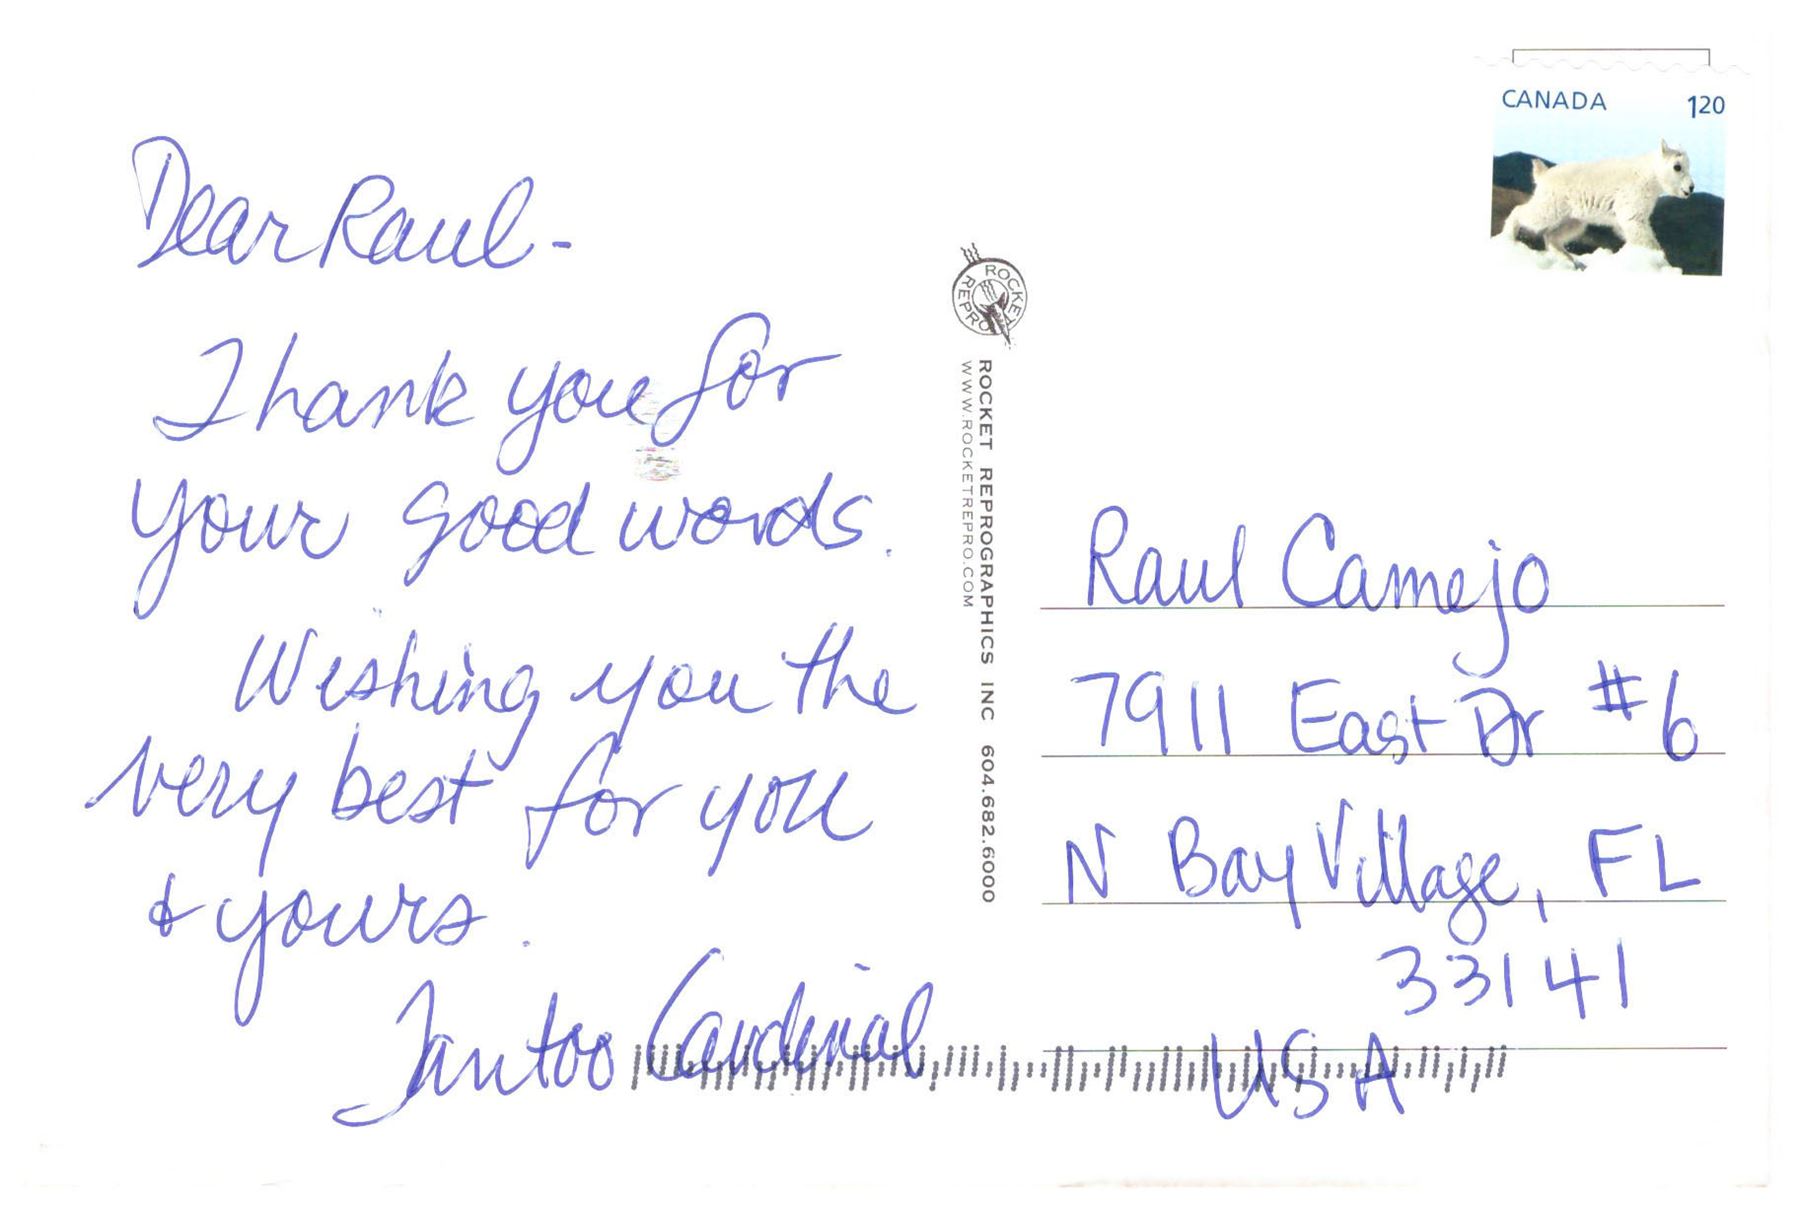 Dear Raul -
Thank you for
your good words.
Wishing you the
very best for you
& yours.
Tantoo Cardinal
CANADA 1.20
ROCKET REPRO
ROCKET REPROGRAPHICS INC 604.682.6000
WWW.ROCKETREPRO.COM
Raul Camejo
7911 East Dr #6
N Bay Village, FL
33141
USA